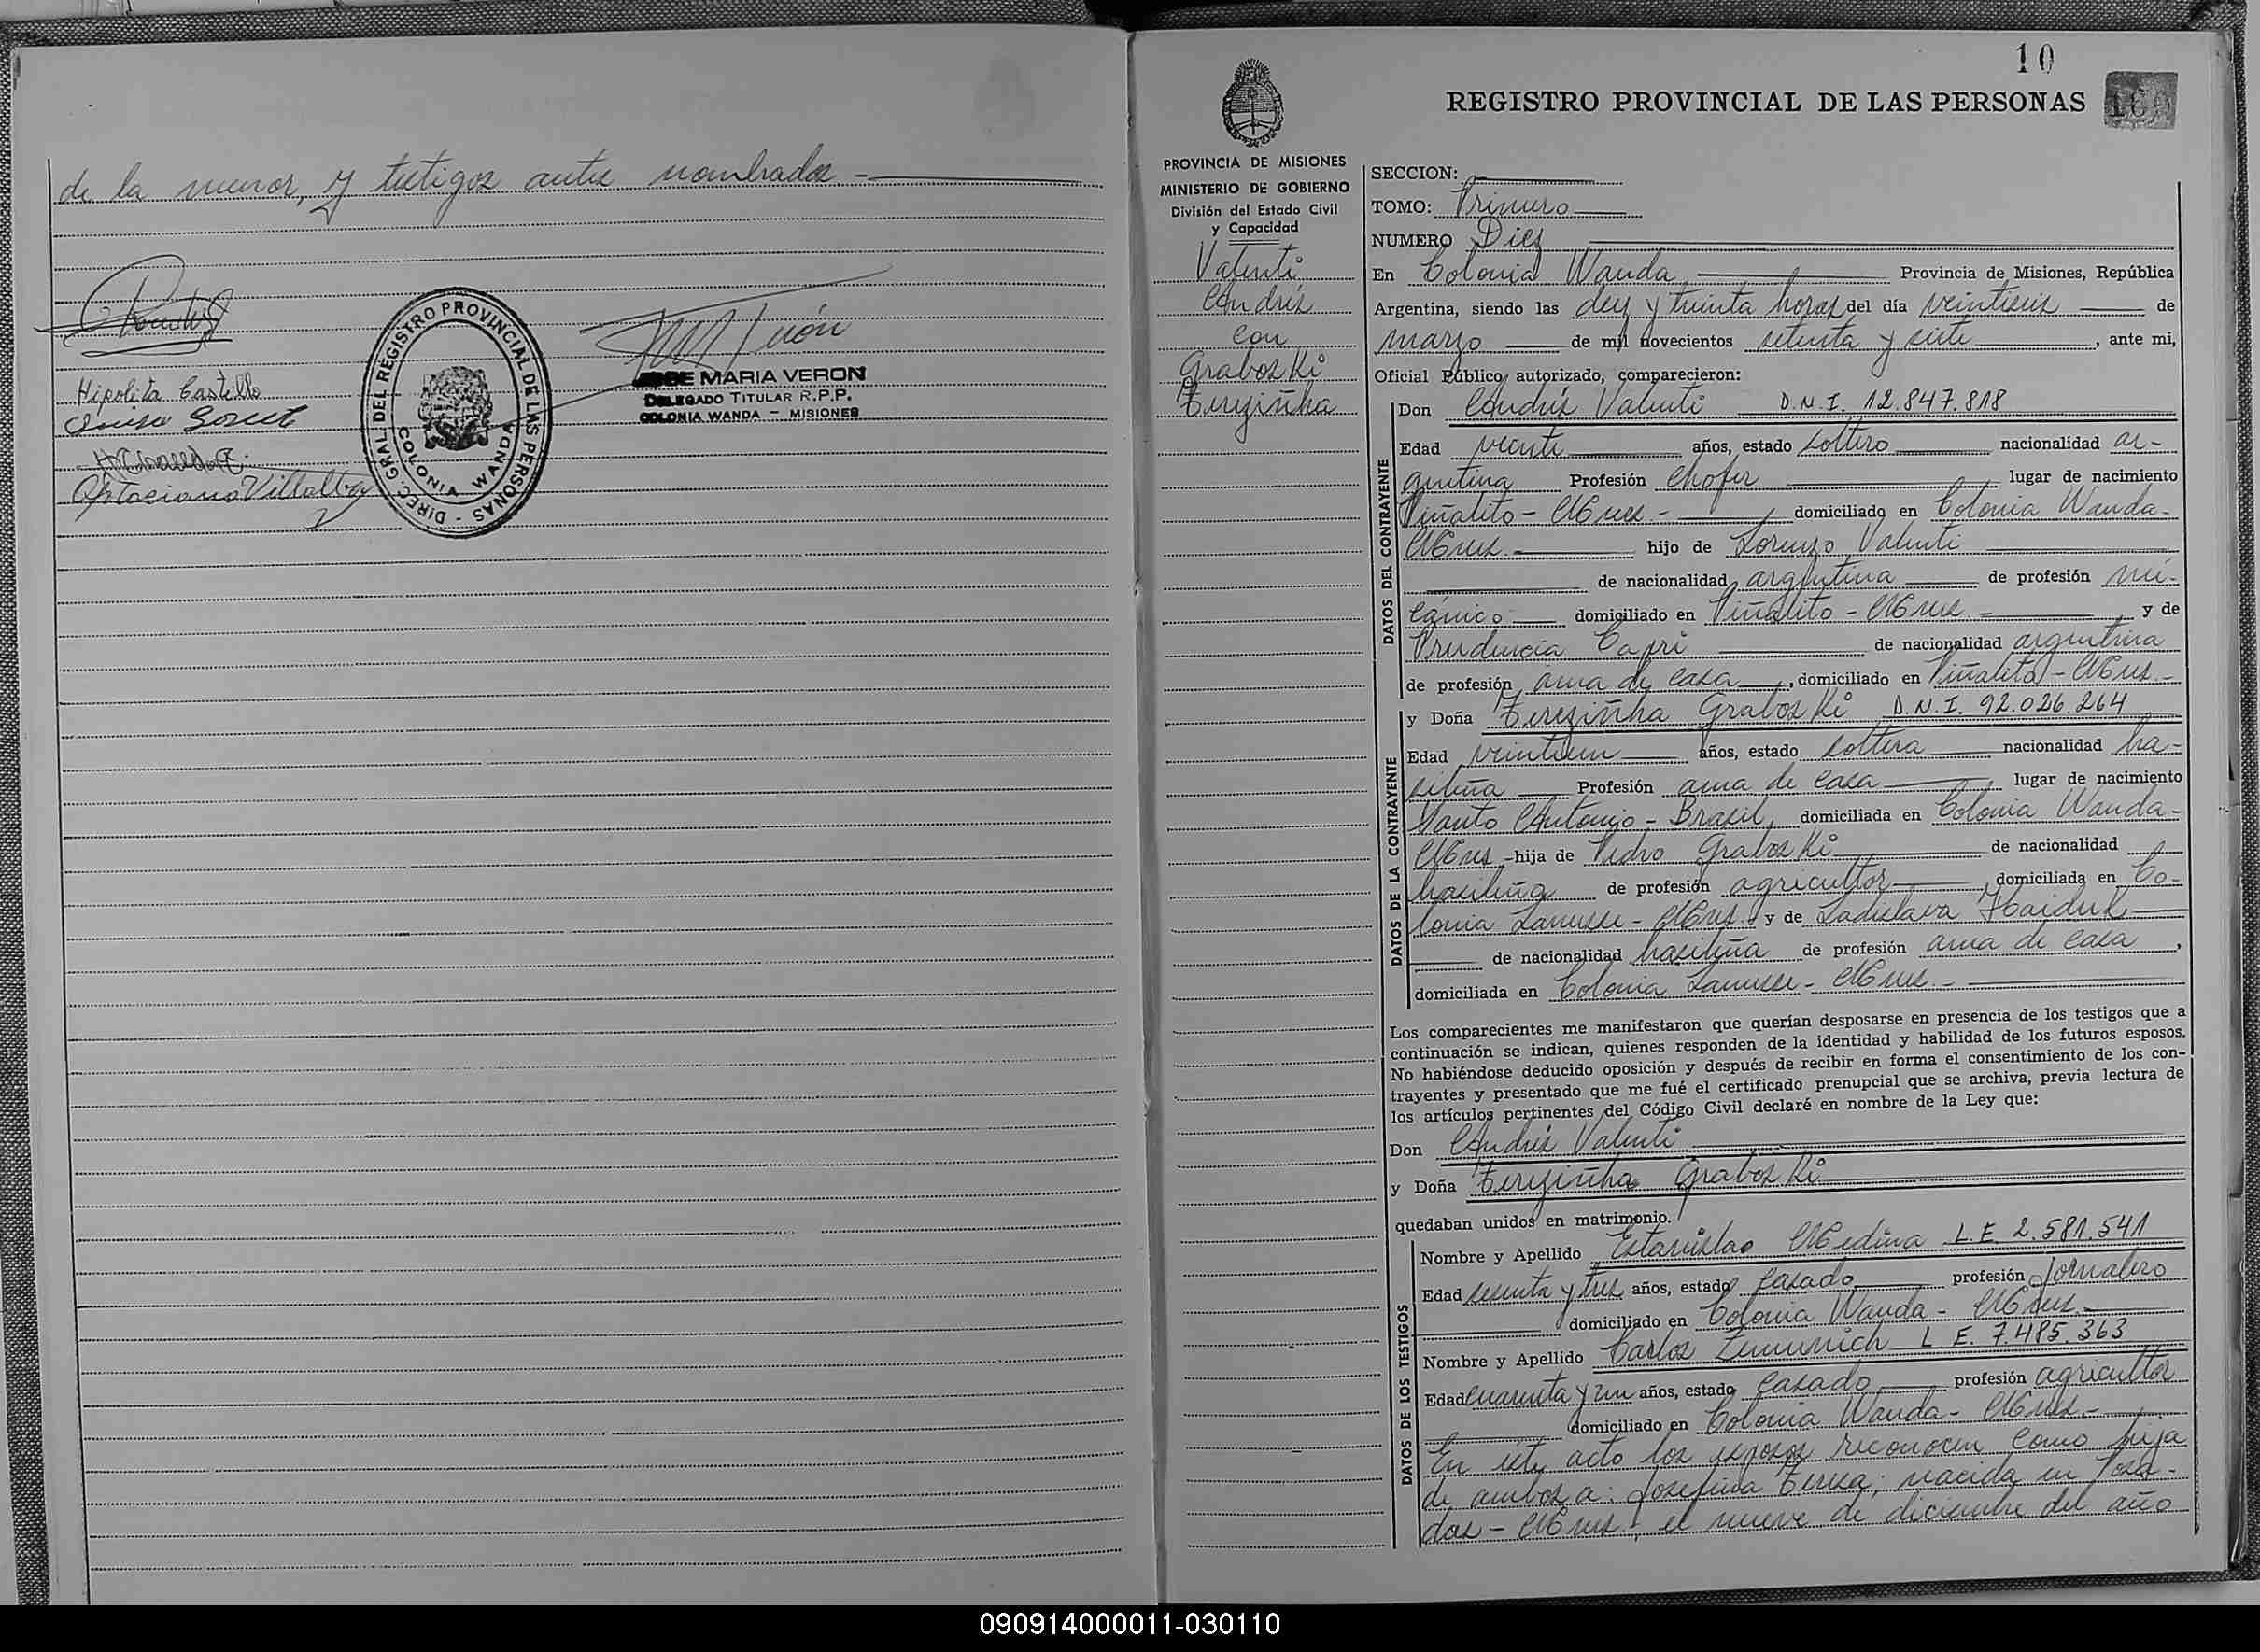 de la menor, y testigos antes nombrados.-
Hipolita Castillo
Optaciano Villalba
DIREC. GRAL. DEL REGISTRO PROVINCIAL DE LAS PERSONAS -
COLONIA WANDA
JOSE MARIA VERON
DELEGADO TITULAR R.P.P.
COLONIA WANDA - MISIONES
10
REGISTRO PROVINCIAL DE LAS PERSONAS
160
PROVINCIA DE MISIONES
MINISTERIO DE GOBIERNO
División del Estado Civil
y Capacidad
Valenti
Andrés
con
Graboski
Terezinha
SECCION:
TOMO: Primero
NUMERO Diez
En Colonia Wanda Provincia de Misiones, República
Argentina, siendo las diez y treinta horas del día veintiseis de
marzo de mil novecientos setenta y siete, ante mi,
Oficial Público autorizado, comparecieron:
DATOS DEL CONTRAYENTE
Don Andrés Valenti D.N.I. 12.847.818
Edad veinte años, estado soltero nacionalidad ar-
gentina Profesión chofer lugar de nacimiento
Piñalito - Mnes.- domiciliado en Colonia Wanda-
Mnes.- hijo de Lorenzo Valenti
de nacionalidad argentina de profesión me-
cánico domiciliado en Piñalito - Mnes.- y de
Prudencia Capri de nacionalidad argentina
de profesión ama de casa, domiciliado en Piñalito - Mnes.-
DATOS DE LA CONTRAYENTE
y Doña Terezinha Graboski D.N.I. 92.026.264
Edad veintiun años, estado soltera nacionalidad bra-
sileña Profesión ama de casa lugar de nacimiento
Santo Antonio - Brasil, domiciliada en Colonia Wanda-
Mnes.-hija de Pedro Graboski de nacionalidad
brasileña de profesión agricultor, domiciliada en Co-
lonia Lanusse - Mnes. y de Ladislava Haiduk
de nacionalidad brasileña de profesión ama de casa,
domiciliada en Colonia Lanusse - Mnes.-
Los comparecientes me manifestaron que querían desposarse en presencia de los testigos que a
continuación se indican, quienes responden de la identidad y habilidad de los futuros esposos.
No habiéndose deducido oposición y después de recibir en forma el consentimiento de los con-
trayentes y presentado que me fué el certificado prenupcial que se archiva, previa lectura de
los artículos pertinentes del Código Civil declaré en nombre de la Ley que:
Don Andrés Valenti
y Doña Terezinha Graboski
quedaban unidos en matrimonio.
DATOS DE LOS TESTIGOS
Nombre y Apellido Estanislao Medina L.E. 2.581.541
Edad sesenta y tres años, estado casado profesión jornalero
domiciliado en Colonia Wanda - Mnes.-
Nombre y Apellido Carlos Zimmerich L.E. 7.485.363
Edad cuarenta y un años, estado casado profesión agricultor
domiciliado en Colonia Wanda - Mnes.-
En este acto los esposos reconocen como hija
de ambos a: Josefina Teresa; nacida en Posa-
das - Mnes., el nueve de diciembre del año
090914000011-030110